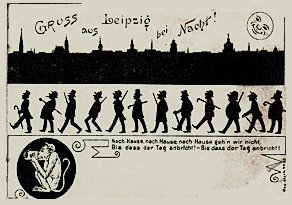 Gruss aus Leipzig bei Nacht!
Nach Hause, nach Hause, nach Hause geh'n wir nicht,
Bis dass der Tag anbricht! – Bis dass der Tag anbricht!